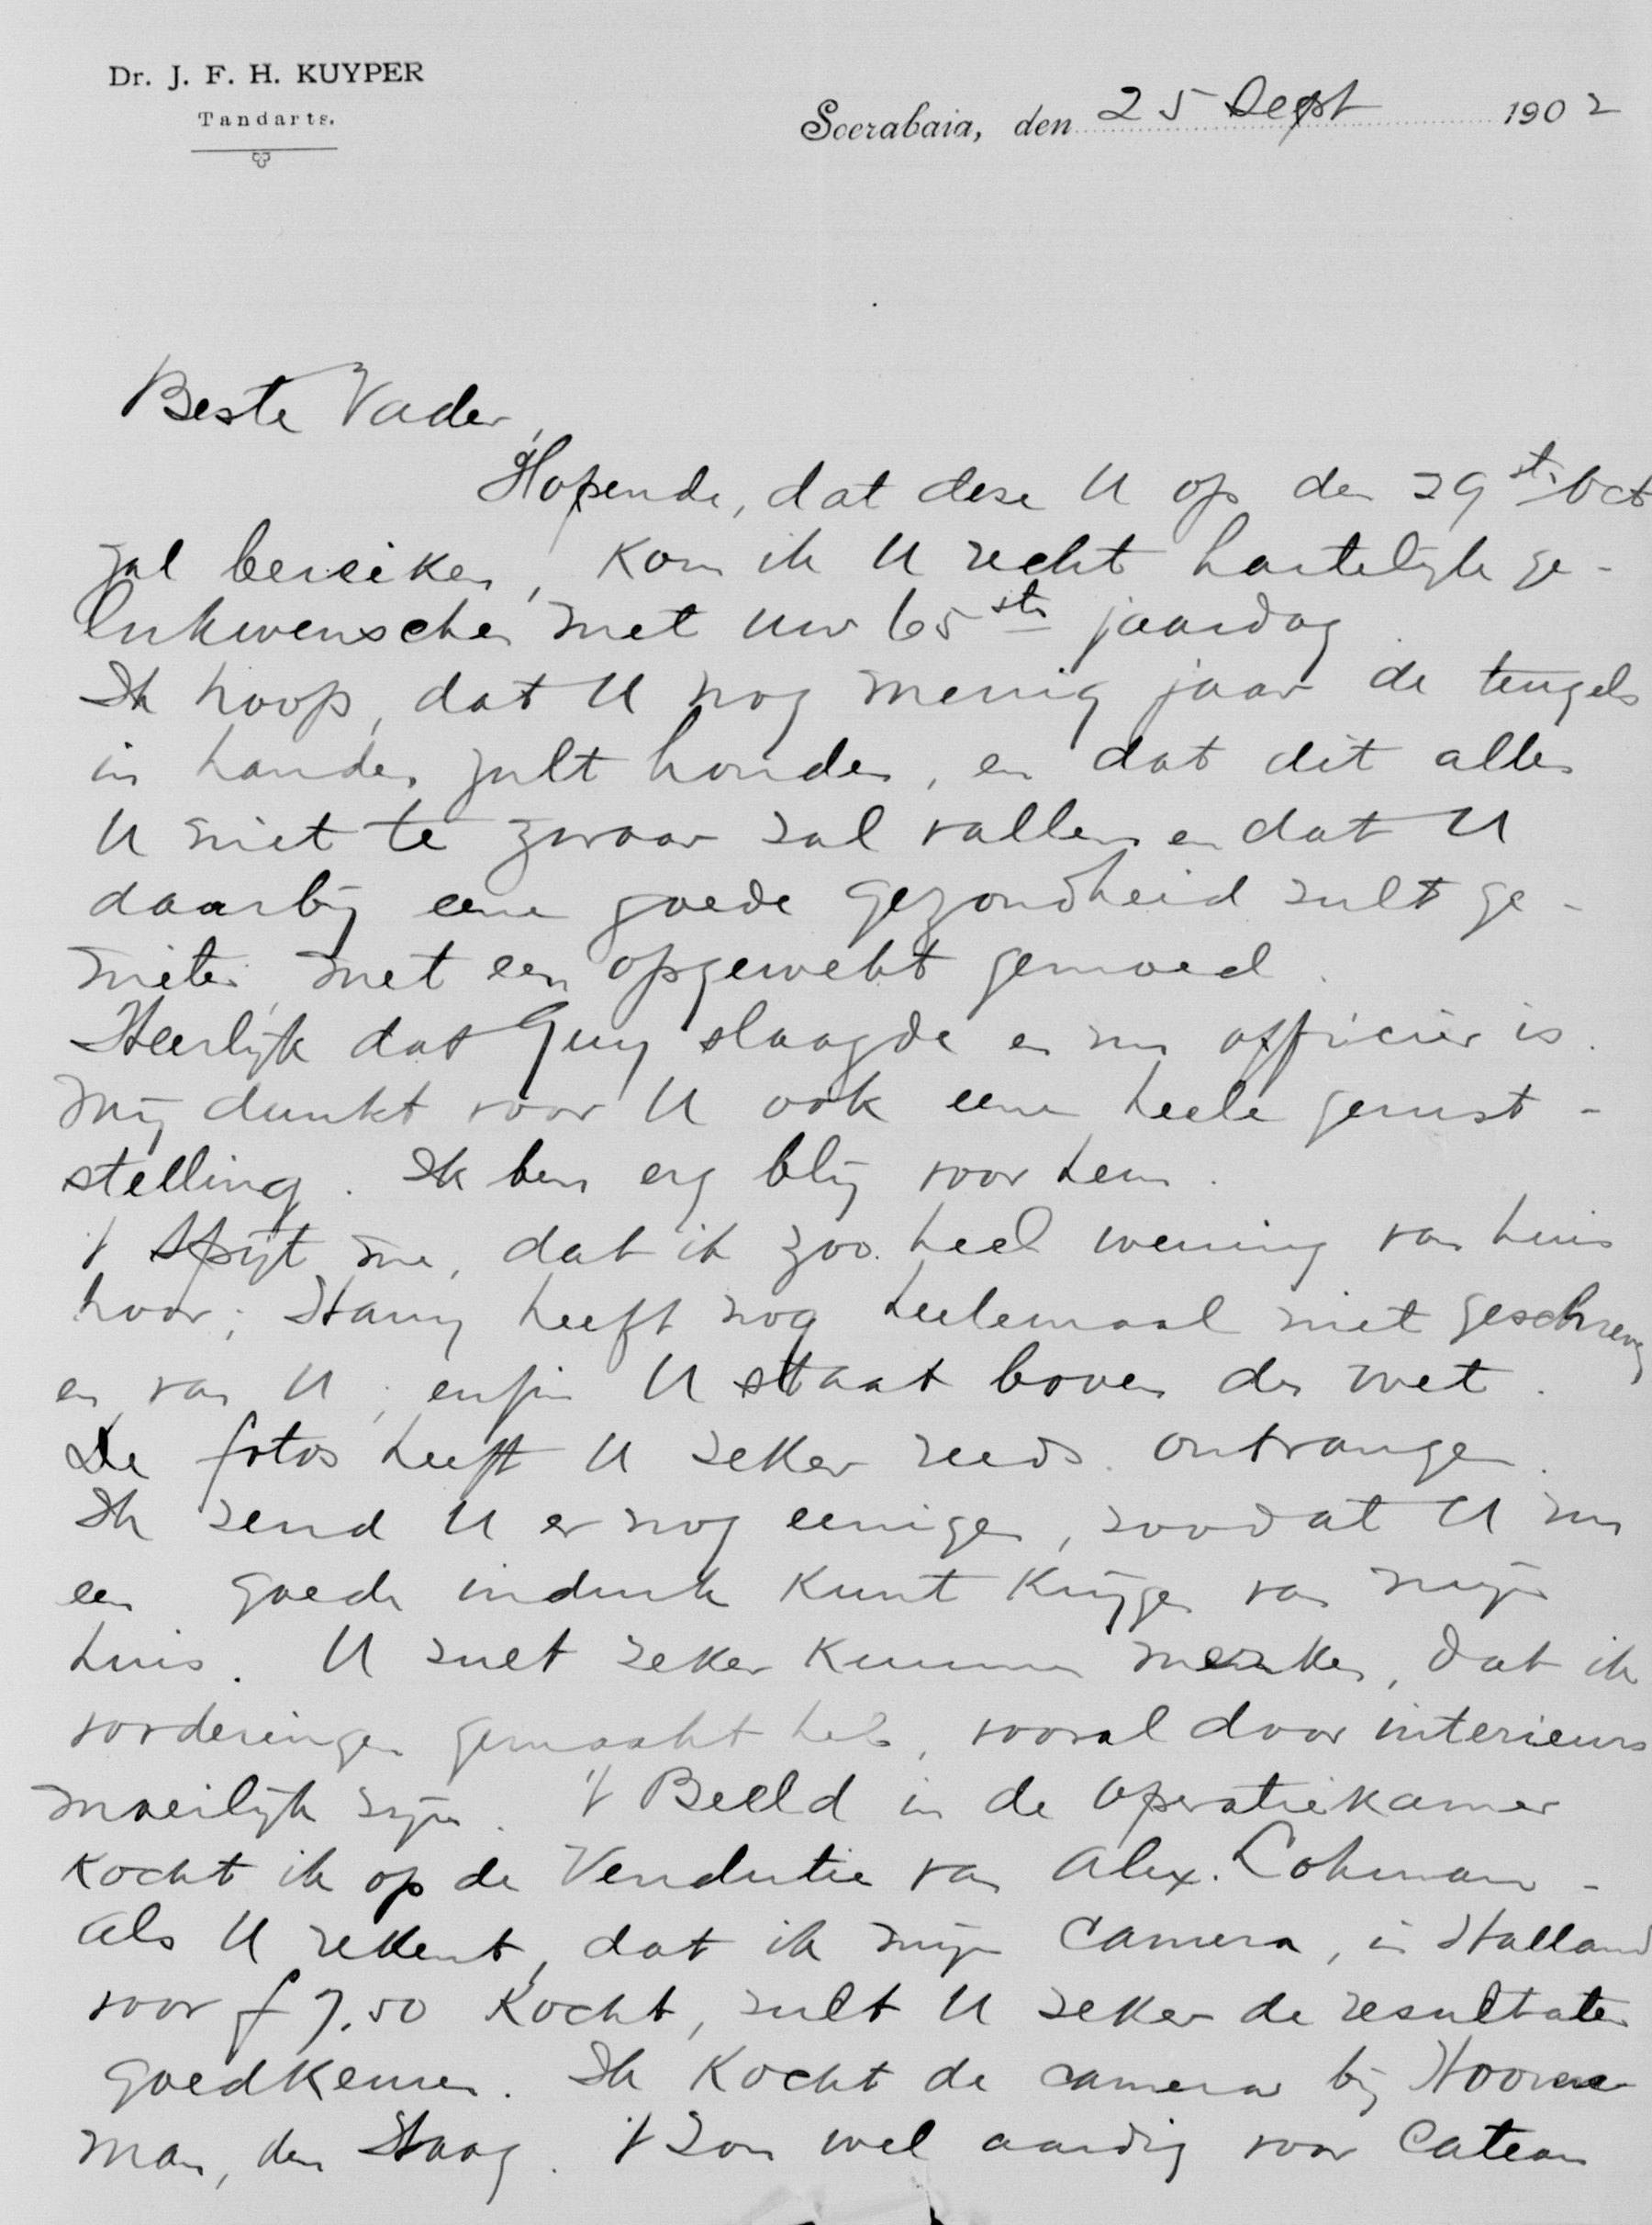 Dr. J. F. H. KUYPER
Tandarts.
Soerabaia, den 25 Sept 1902
Beste Vader,
Hopende, dat deze U op den 29ste Oct
zal bereiken, kom ik U recht hartelijk ge-
lukwenschen met uw 65ste jaardag.
Ik hoop, dat U nog menig jaar de teugels
in handen zult houden, en dat dit alles
U niet te zwaar zal vallen en dat U
daarbij eene goede gezondheid zult ge-
nieten, met een opgewekt gemoed.
Heerlijk dat Guy slaagde en nu officier is.
Mij dunkt voor U ook eene heele gerust-
stelling. Ik ben erg blij voor hem.
't Spijt me, dat ik zoo heel weinig van huis
hoor; Harry heeft nog heelemaal niet geschreven
en van U; enfin U staat boven de wet.
De fotos heeft U zeker reeds ontvangen.
Ik zend U er nog eenige, zoodat U nu
een goede indruk kunt krijgen van mijn
huis. U zult zeker kunnen merken, dat ik
vorderingen gemaakt heb, vooral daar interieurs
moeilijk zijn. 't Beeld in de operatiekamer
kocht ik op de Vendutie van Alex. Lohman -
Als U rekent, dat ik mijn camera, in Holland
voor f 7.50 kocht, zult U zeker de resultaten
goedkeuren. Ik kocht de camera bij
man, den Haag. 't Zou wel aardig voor Cateau